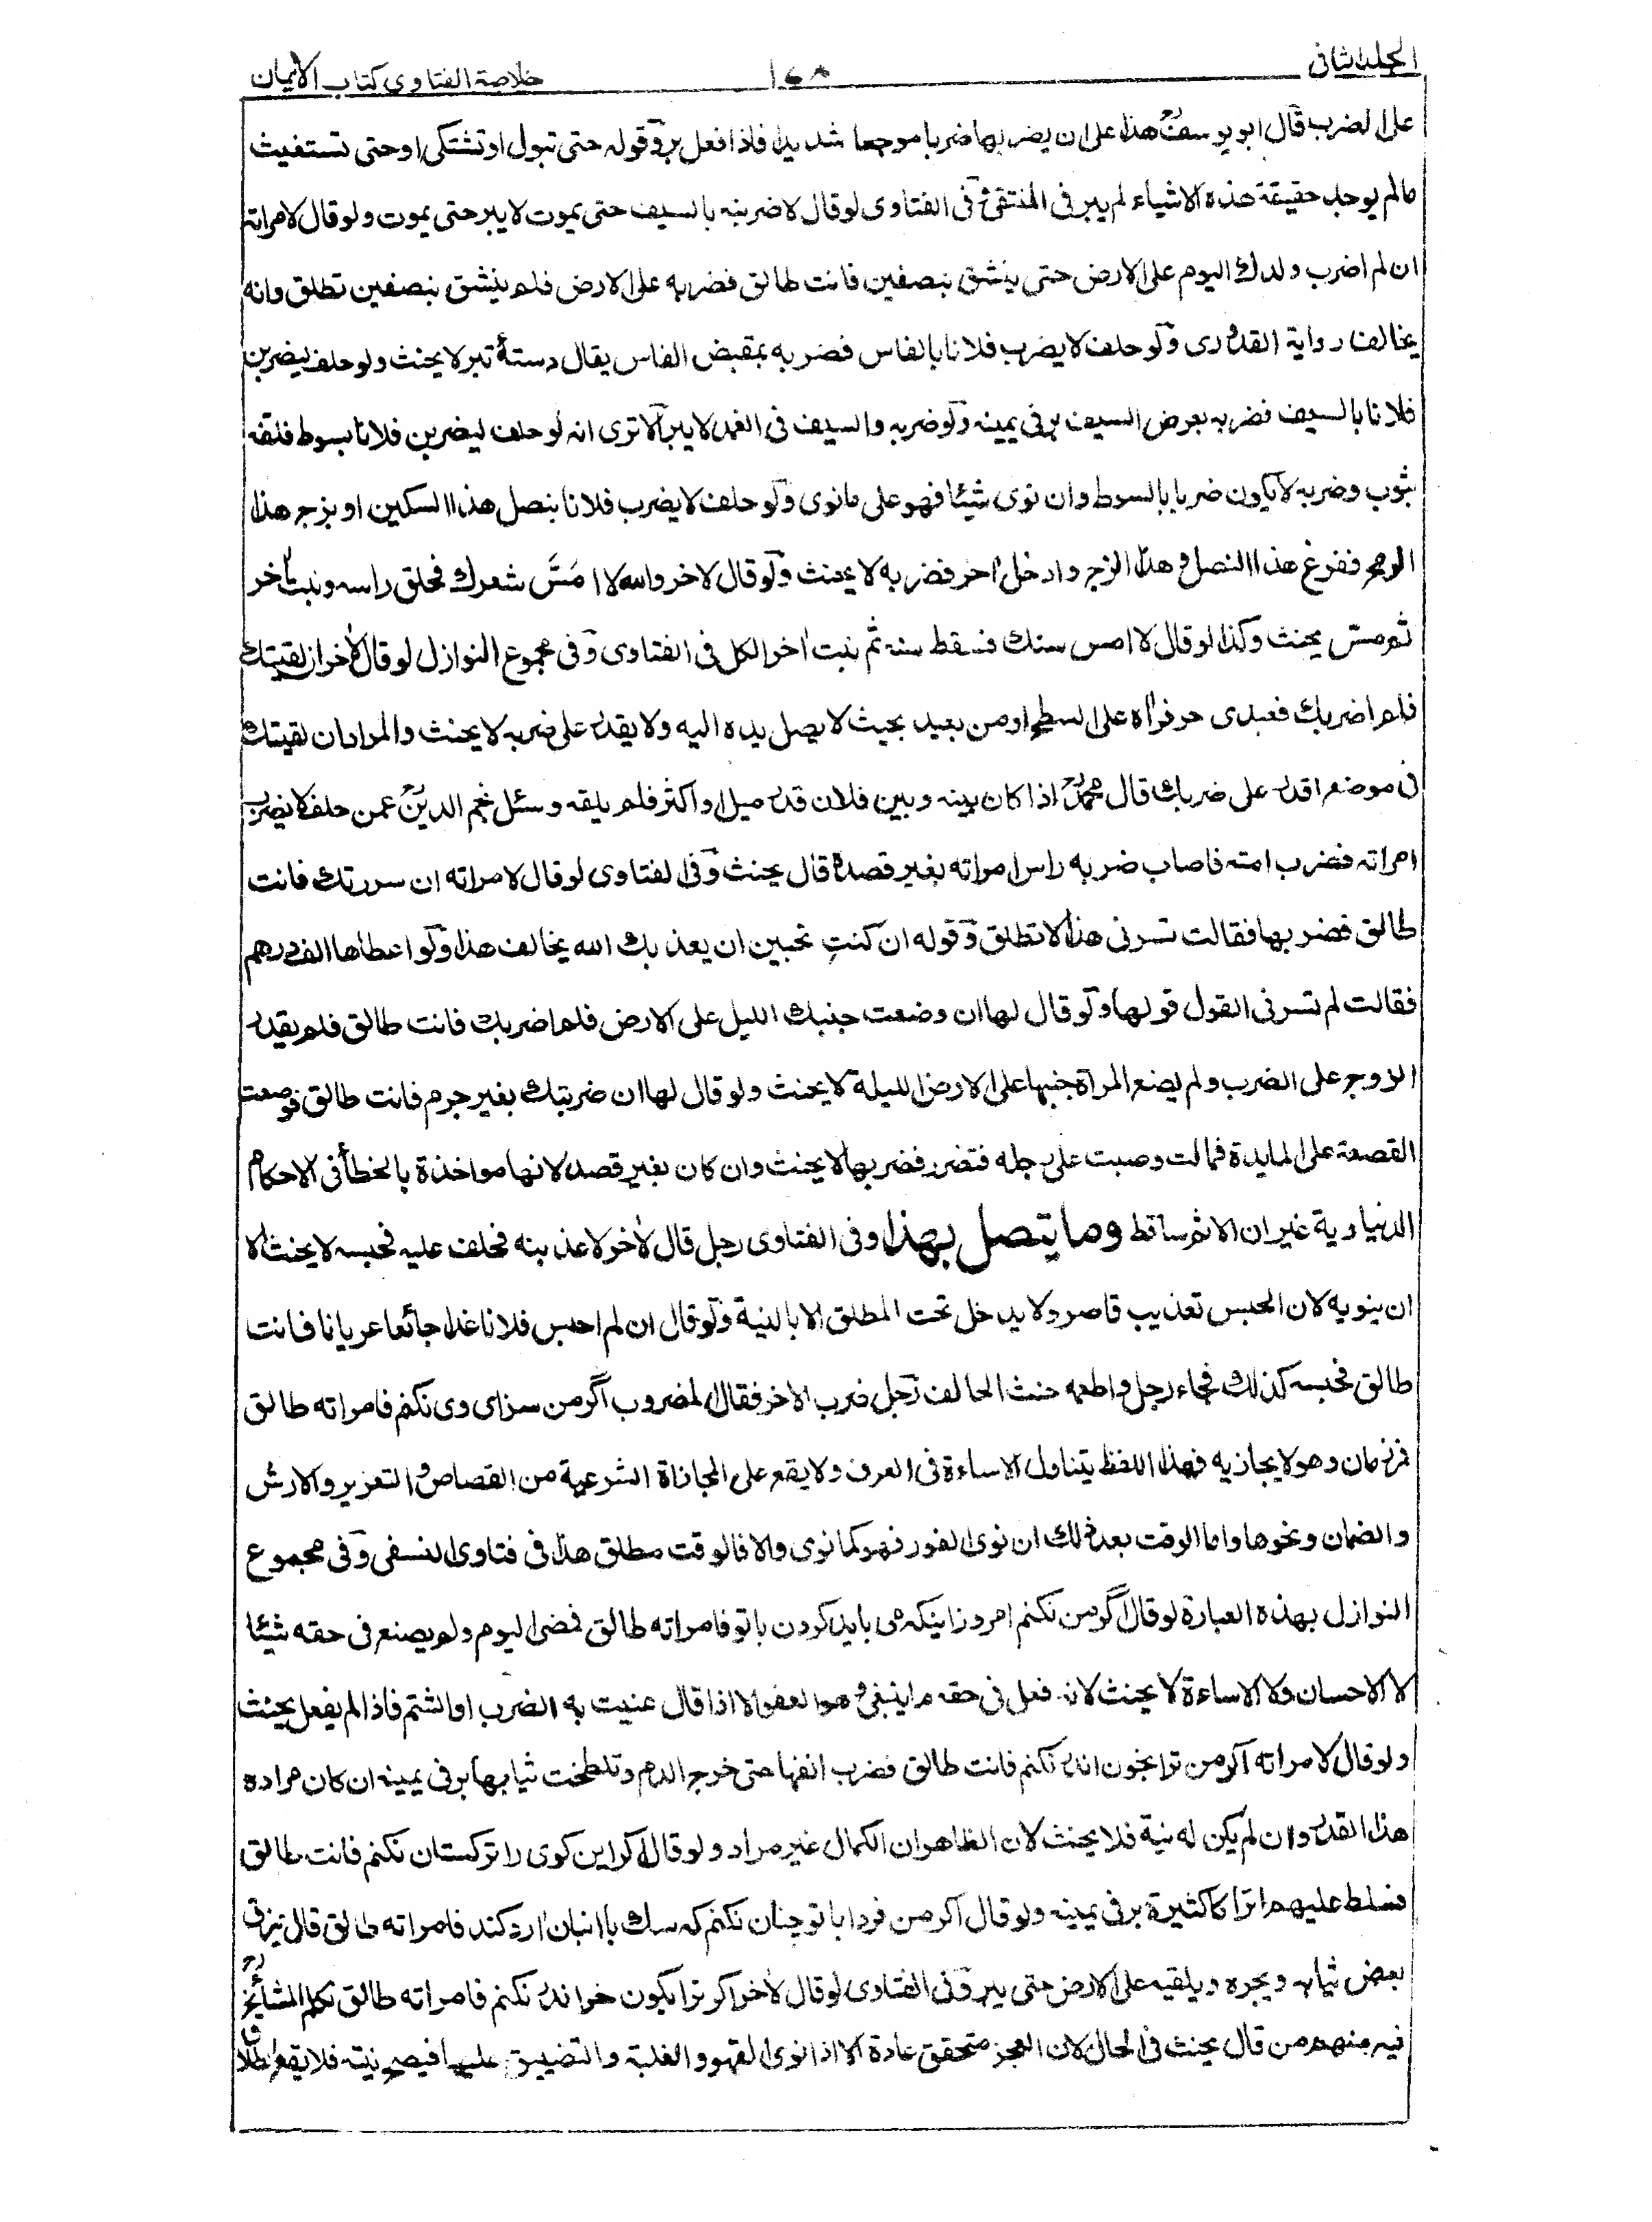 الجلد الثانی
خلاصة الفتاوی کتاب الایمان
علی الضرب قال ابو یوسف هذا علی ان یضربها ضربا موجعا شدیدا فاذا فعل بر وقوله حتی تبول او تشتکی او حتی تستغیث
مالم یوجد حقیقة هذه الاشیاء لم یبر فی المنتقی فی الفتاوی لو قال لاضربنه بالسیف حتی یموت لا یبر حتی یموت ولو قال لامراته
ان لم اضرب ولدك الیوم علی الارض حتی ینشق بنصفین فانت طالق فضربه علی الارض فلم ینشق بنصفین تطلق وانه
یخالف روایة القدوری ولو حلف لا یضرب فلانا بالفاس فضربه بمقبض الفاس یقال دستهٔ تبر لا یحنث ولو حلف لیضربن
فلانا بالسیف فضربه بعرض السیف بر فی یمینه ولو ضربه والسیف فی الغمد لا یبر الا تری انه لو حلف لیضربن فلانا بسوط فلفه
بثوب وضربه لا یکون ضربا بالسوط وان نوی شیئا فهو علی ما نوی ولو حلف لا یضرب فلانا بنصل هذا السکین او بزج هذا
الرمح ففرغ هذا النصل وهذا الزج وادخل اخر فضربه لا یحنث ولو قال لاخر والله لا امَسّ شعرك فحلق راسه ونبت اخر
ثم مسّ یحنث وکذا لو قال لا امس سنك فسقط سنه ثم نبت اخر الکل فی الفتاوی وفی مجموع النوازل لو قال لاخر ان لقیتك
فلم اضربك فعبدی حر فراه علی السطح او من بعید بحیث لا یصل یده الیه ولا یقدر علی ضربه لا یحنث والمراد ان لقیتك
فی موضع اقدر علی ضربك قال محمد اذا کان بینه وبین فلان قدر میل او اکثر فلم یلقه وسئل نجم الدین عمن حلف لا یضرب
امراته فضرب امته فاصاب ضربه راس امراته بغیر قصده قال یحنث وفی الفتاوی لو قال لامراته ان سررتك فانت
طالق فضربها فقالت تسرنی هذا لا تطلق وقوله ان کنتِ تحبین ان یعذبك الله یخالف هذا ولو اعطاها الف درهم
فقالت لم تسرنی القول قولها ولو قال لها ان وضعت جنبك اللیل علی الارض فلم اضربك فانت طالق فلم یقدر
الزوج علی الضرب ولم یضع المراة جنبها علی الارض اللیلة لا یحنث ولو قال لها ان ضربتك بغیر جرم فانت طالق فوضعت
القصعة علی المایدة فمالت وصبت علی رجله فتضرر فضربها لا یحنث وان کان بغیر قصد لانها مواخذة بالخطأ فی الاحکام
الدنیاویة غیر ان الاثم ساقط وما یتصل بهذا وفی الفتاوی رجل قال لاخر لاعذبنه فحلف علیه فحبسه لا یحنث الا
ان ینویه لان الحبس تعذیب قاصر ولا یدخل تحت المطلق الا بالنیة ولو قال ان لم احبس فلانا غدا جائعا عریانا فانت
طالق فحبسه کذلك فجاء رجل واطعمه حنث الحالف رجل ضرب الاخر فقال المضروب اگر من سزای وی نکنم فامراته طالق
فمر زمان وهو لا یجازیه فهذا اللفظ یتناول الاساءة فی العرف ولا یقع علی المجازاة الشرعیة من القصاص والتعزیر والارش
والضمان ونحوها واما الوقت بعد ذلك ان نوی الفور فهو کما نوی والا فالوقت مطلق هذا فی فتاوی النسفی وفی مجموع
النوازل بهذه العبارة لو قال اگر من نکنم امروز اینکه می باید کردن با تو فامراته طالق فمضی الیوم ولم یصنع فی حقه شیئا
لا الاحسان ولا الاساءة لا یحنث لانه فعل فی حقه ما ینبغی وهو العفو الا اذا قال عنیت به الضرب او الشتم فاذا لم یفعل یحنث
ولو قال لامراته اگر من ترا بخون اندر نکنم فانت طالق فضرب انفها حتی خرج الدم وتلطخت ثیابها بر فی یمینه ان کان مراده
هذا القدر وان لم یکن له نیة فلا یحنث لان الظاهر ان الکمال غیر مراد ولو قال اگر این کوی را ترکستان نکنم فانت طالق
فسلط علیهم اتراکا کثیرة بر فی یمینه ولو قال اگر من فردا با تو چنان نکنم که سك با انبان ارد کند فامراته طالق قال یمزق
بعض ثیابه ویجره ویلقیه علی الارض حتی یبر وفی الفتاوی لو قال لاخر اگر ترا بکون خر اندر نکنم فامراته طالق تکلم المشائخ
فیه منهم من قال یحنث فی الحال لان العجز متحقق عادة الا اذا نوی القهر والغلبة والتضییق علیه فیصح نیته فلا یقع الطلاق